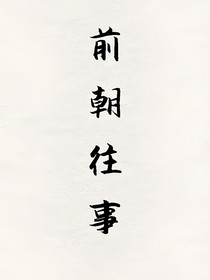 前朝往事